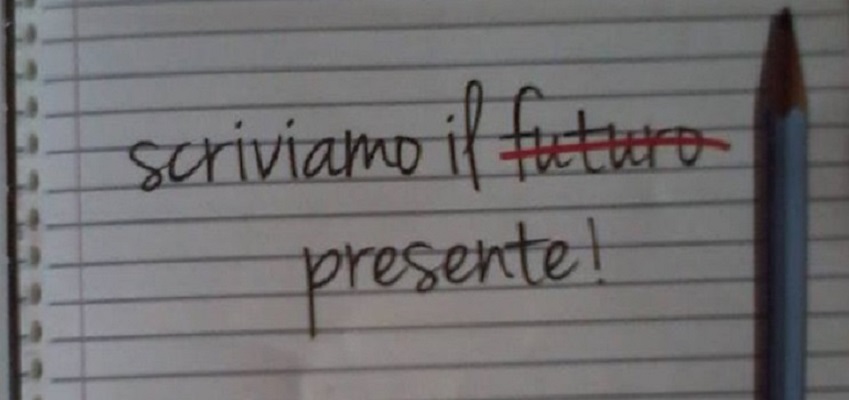 scriviamo il futuro
presente!